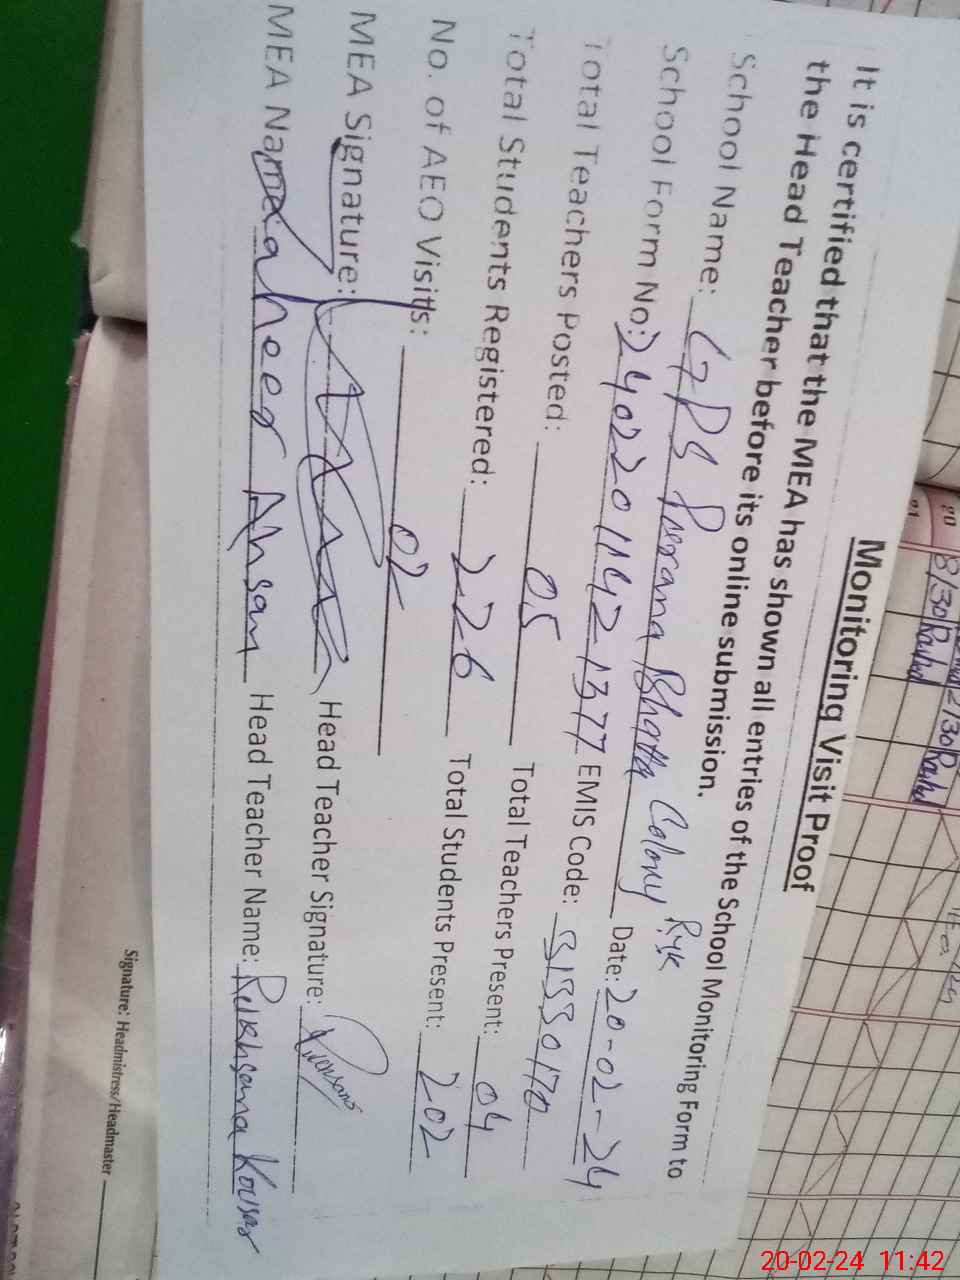 Monitoring Visit Proof
It is certified that the MEA has shown all entries of the School Monitoring Form to
the Head Teacher before its online submission.
School Name: GPS Purana Bhatta Colony Ryk
School Form No: 24022011421377 Date: 20-02-24
Total Teachers Posted: 05 EMIS Code: 31330170
Total Students Registered: 226 Total Teachers Present: 04
No. of AEO Visits: 02 Total Students Present: 202
MEA Signature: Head Teacher Signature:
MEA Name: Ahsan Head Teacher Name: Rukhsana Kousar
Signature: Headmistress/Headmaster
20
21
8/30 Rashid
2/30 Rashid
20-02-24 11:42